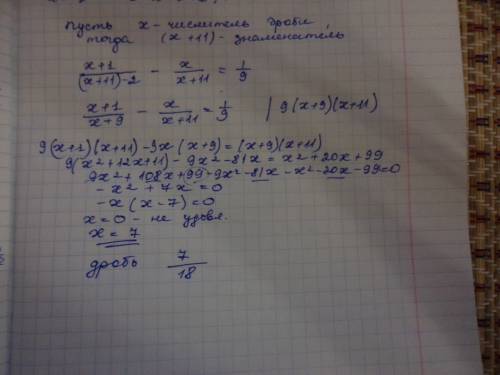 Пусть x - числитель дроби,
тогда (x + 11) - знаменатель
(x+1)/((x+11)-2) - x/(x+11) = 1/9
(x+1)/(x+9) - x/(x+11) = 1/9 | 9(x+9)(x+11)
9(x+1)(x+11) - 9x(x+9) = (x+9)(x+11)
9(x²+12x+11) - 9x² - 81x = x² + 20x + 99
9x² + 108x + 99 - 9x² - 81x - x² - 20x - 99 = 0
- x² + 7x = 0
- x (x - 7) = 0
x = 0 - не удовл.
x = 7
дробь 7/18